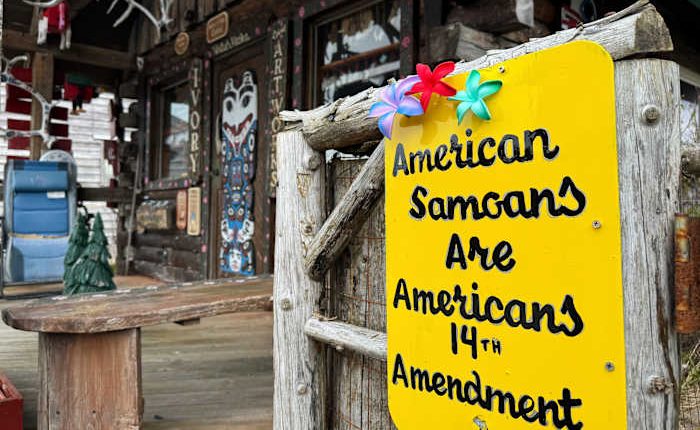 American
Samoans
Are
Americans
14TH
Amendment
IVORY
ARTWORKS